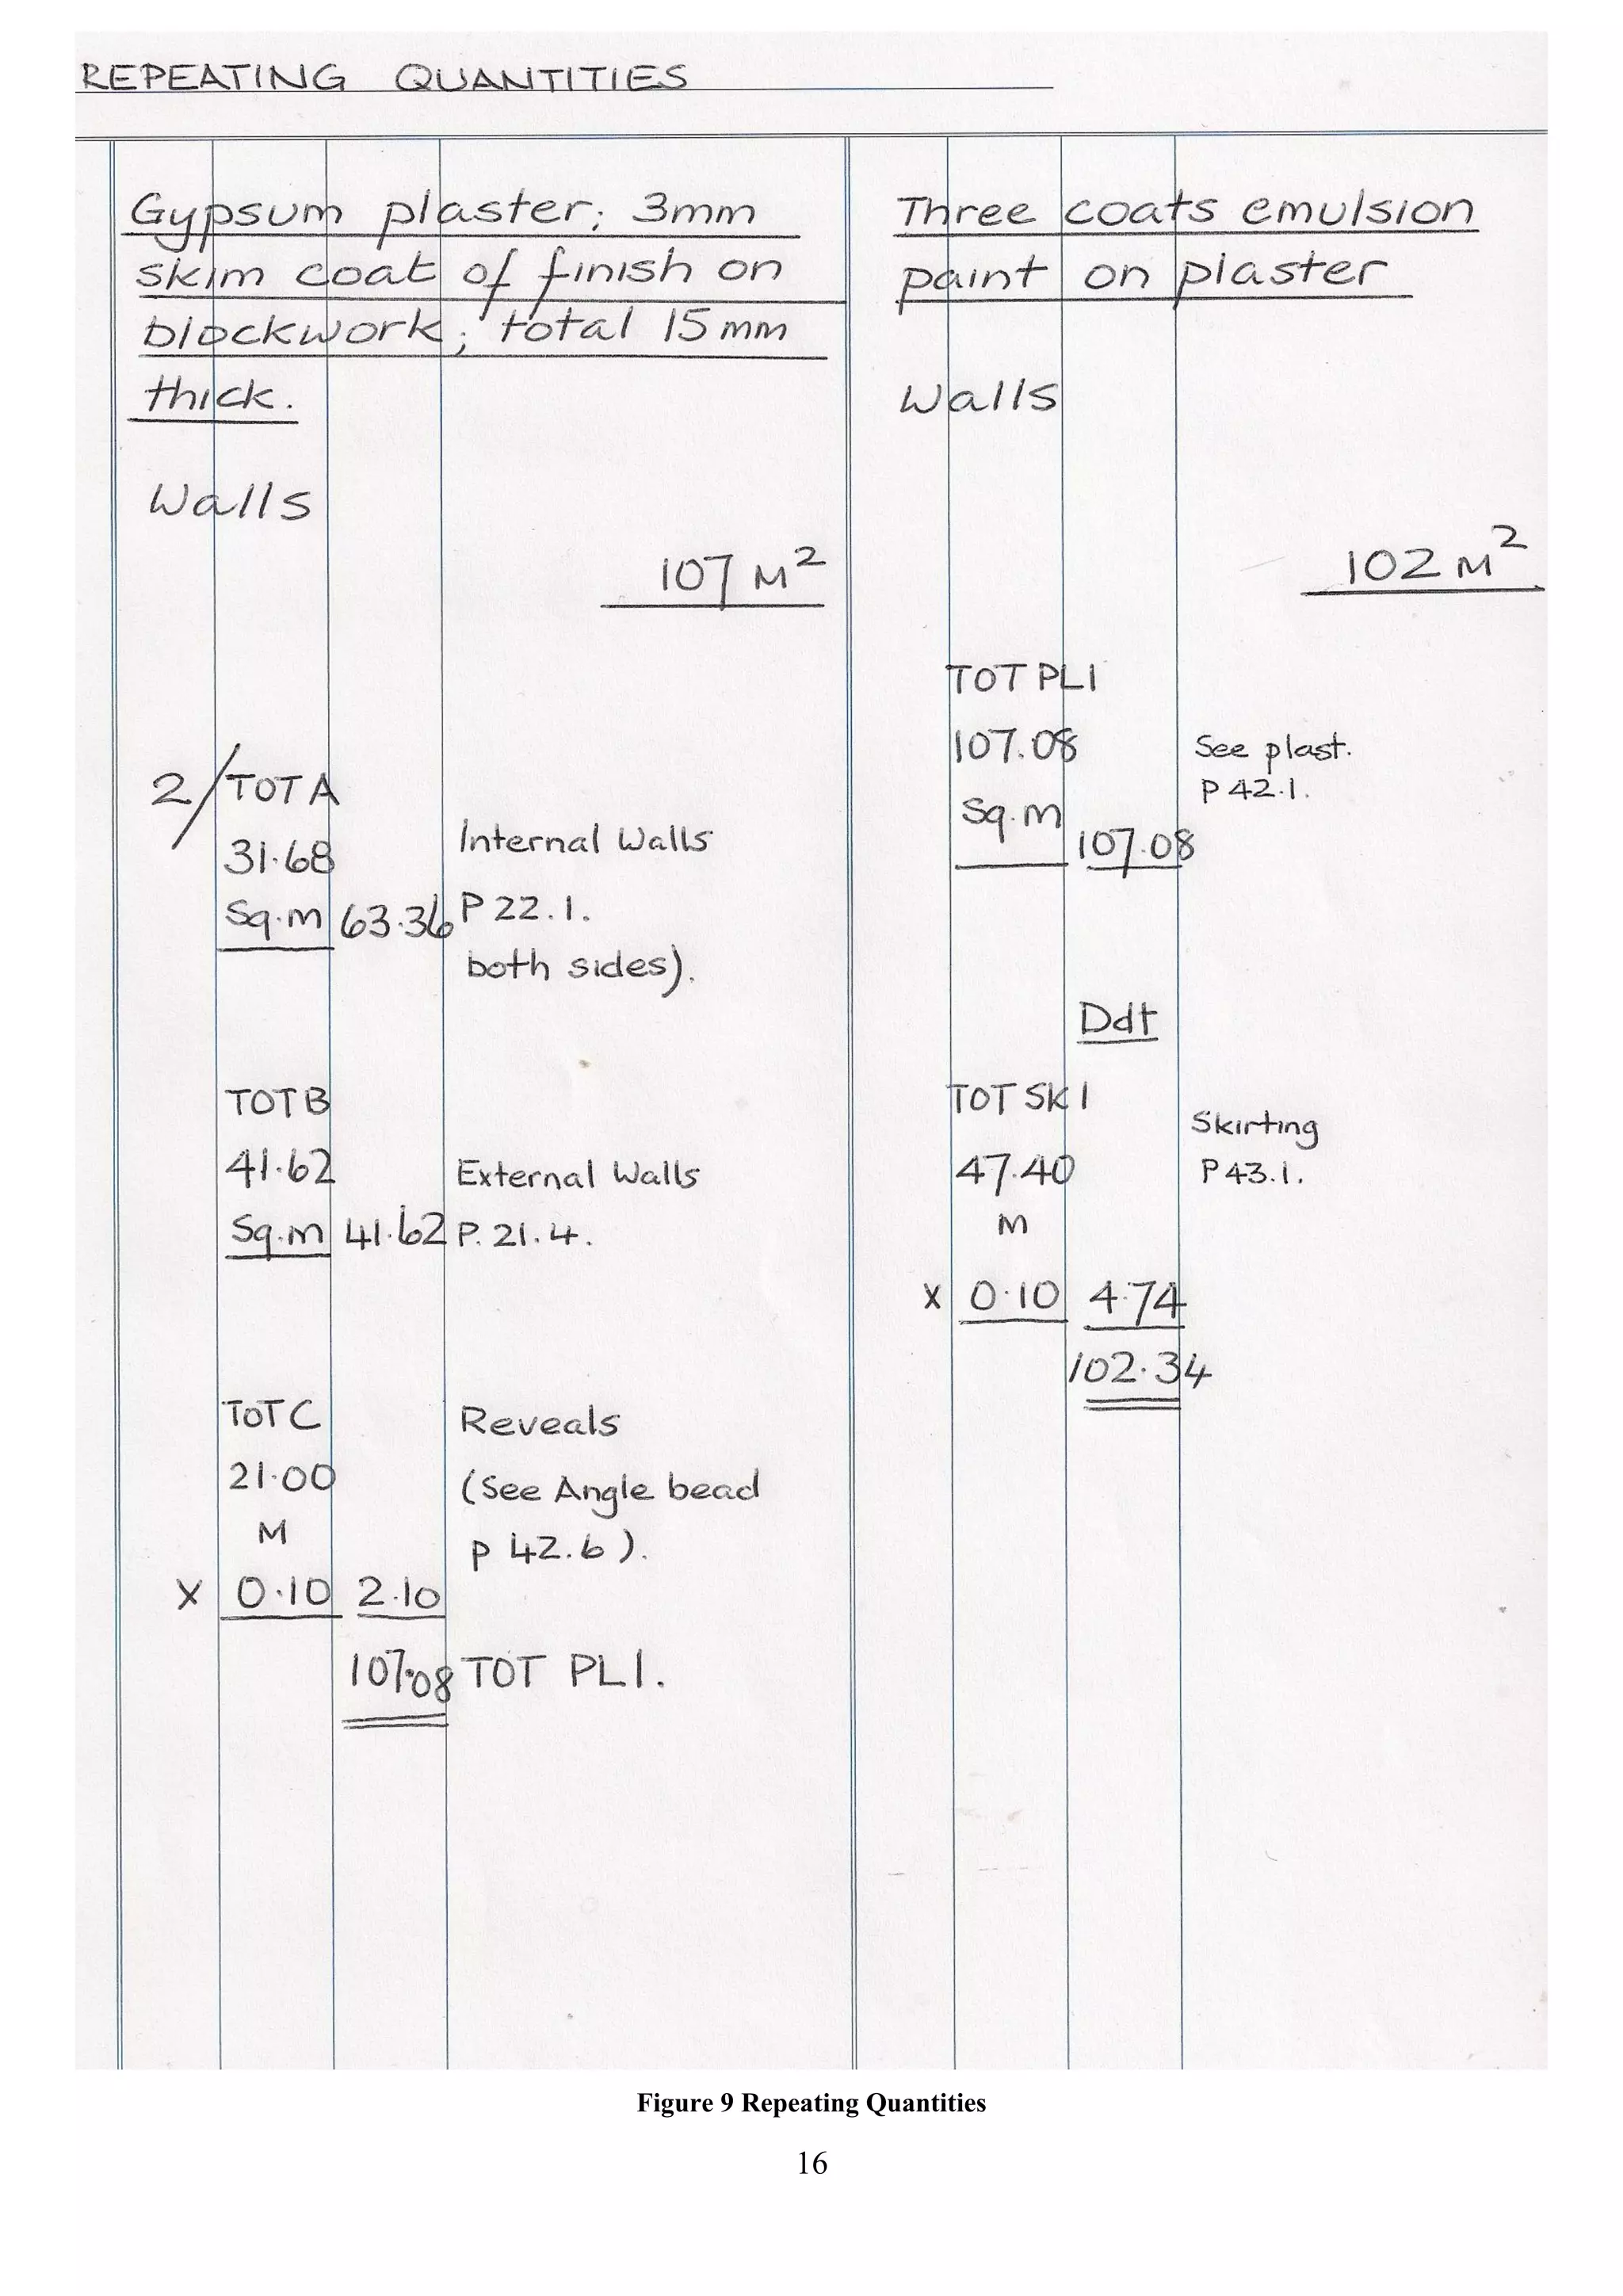 REPEATING QUANTITIES
Gypsum plaster; 3mm
skim coat of finish on
blockwork; total 15mm
thick.
Walls
107 M²
2/TOT A
31.68
Internal Walls
Sq.m 63.36 P 22.1.
both sides).
TOT B
41.62
External Walls
Sq.m 41.62 P. 21.4.
TOT C
Reveals
21.00
(See Angle bead
M
p 42.6).
X 0.10 2.10
107.08 TOT PL1.
Three coats emulsion
paint on plaster
Walls
102 M²
TOT PL1
107.08
See plast.
P 42.1.
Sq.m
107.08
Ddt
TOT SK1
Skirting
47.40
P 43.1.
m
X 0.10 4.74
102.34
Figure 9 Repeating Quantities
16